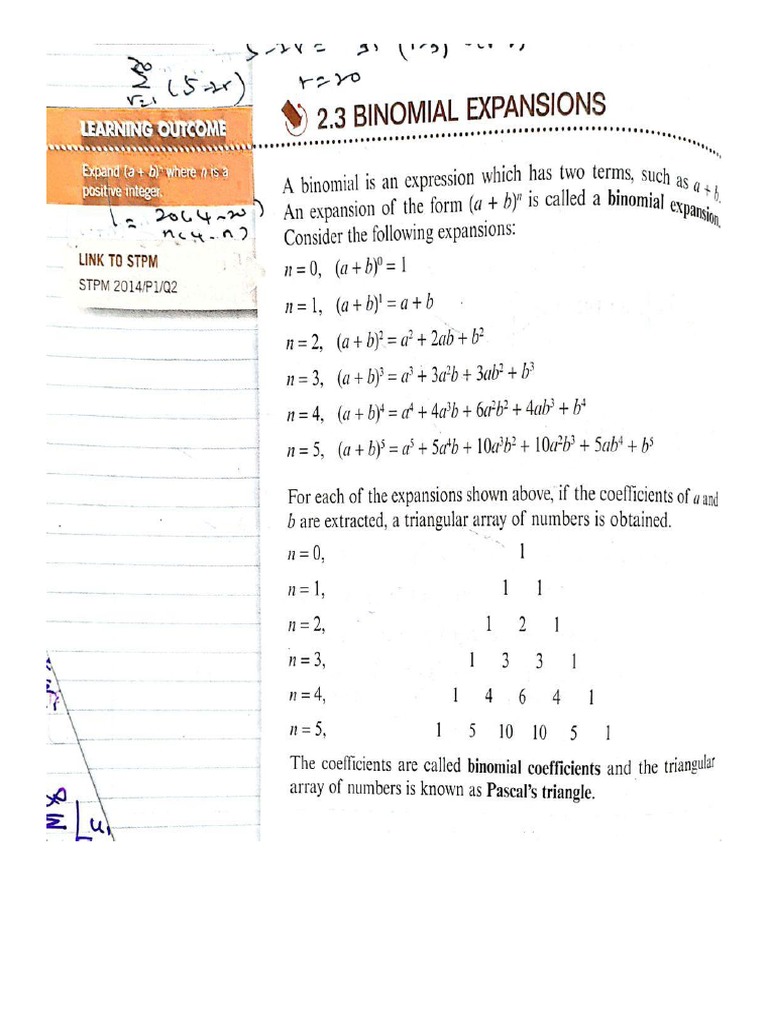 20
Σ (5-2r)
r=1
r=20
2.3 BINOMIAL EXPANSIONS
LEARNING OUTCOME
Expand (a + b)ⁿ where n is a
positive integer.
l = 20(4-20)
n(4-n)
LINK TO STPM
STPM 2014/P1/Q2
A binomial is an expression which has two terms, such as a + b.
An expansion of the form (a + b)ⁿ is called a binomial expansion.
Consider the following expansions:
n = 0, (a + b)⁰ = 1
n = 1, (a + b)¹ = a + b
n = 2, (a + b)² = a² + 2ab + b²
n = 3, (a + b)³ = a³ + 3a²b + 3ab² + b³
n = 4, (a + b)⁴ = a⁴ + 4a³b + 6a²b² + 4ab³ + b⁴
n = 5, (a + b)⁵ = a⁵ + 5a⁴b + 10a³b² + 10a²b³ + 5ab⁴ + b⁵
For each of the expansions shown above, if the coefficients of a and
b are extracted, a triangular array of numbers is obtained.
n = 0, 1
n = 1, 1 1
n = 2, 1 2 1
n = 3, 1 3 3 1
n = 4, 1 4 6 4 1
n = 5, 1 5 10 10 5 1
The coefficients are called binomial coefficients and the triangular
array of numbers is known as Pascal's triangle.